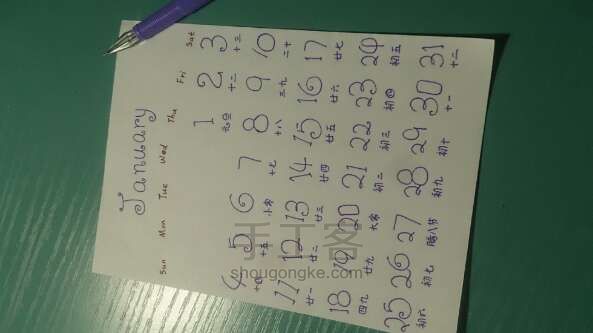 January
Sun Mon Tue Wed Thu Fri Sat
1 2 3
元旦 十二 十三
4 5 6 7 8 9 10
十四 十五 小寒 十七 十八 三九 二十
11 12 13 14 15 16 17
廿一 廿二 廿三 廿四 廿五 廿六 廿七
18 19 20 21 22 23 24
四九 廿九 大寒 初二 初三 初四 初五
25 26 27 28 29 30 31
初六 初七 腊八节 初九 初十 十一 十二
手工客
shougongke.com